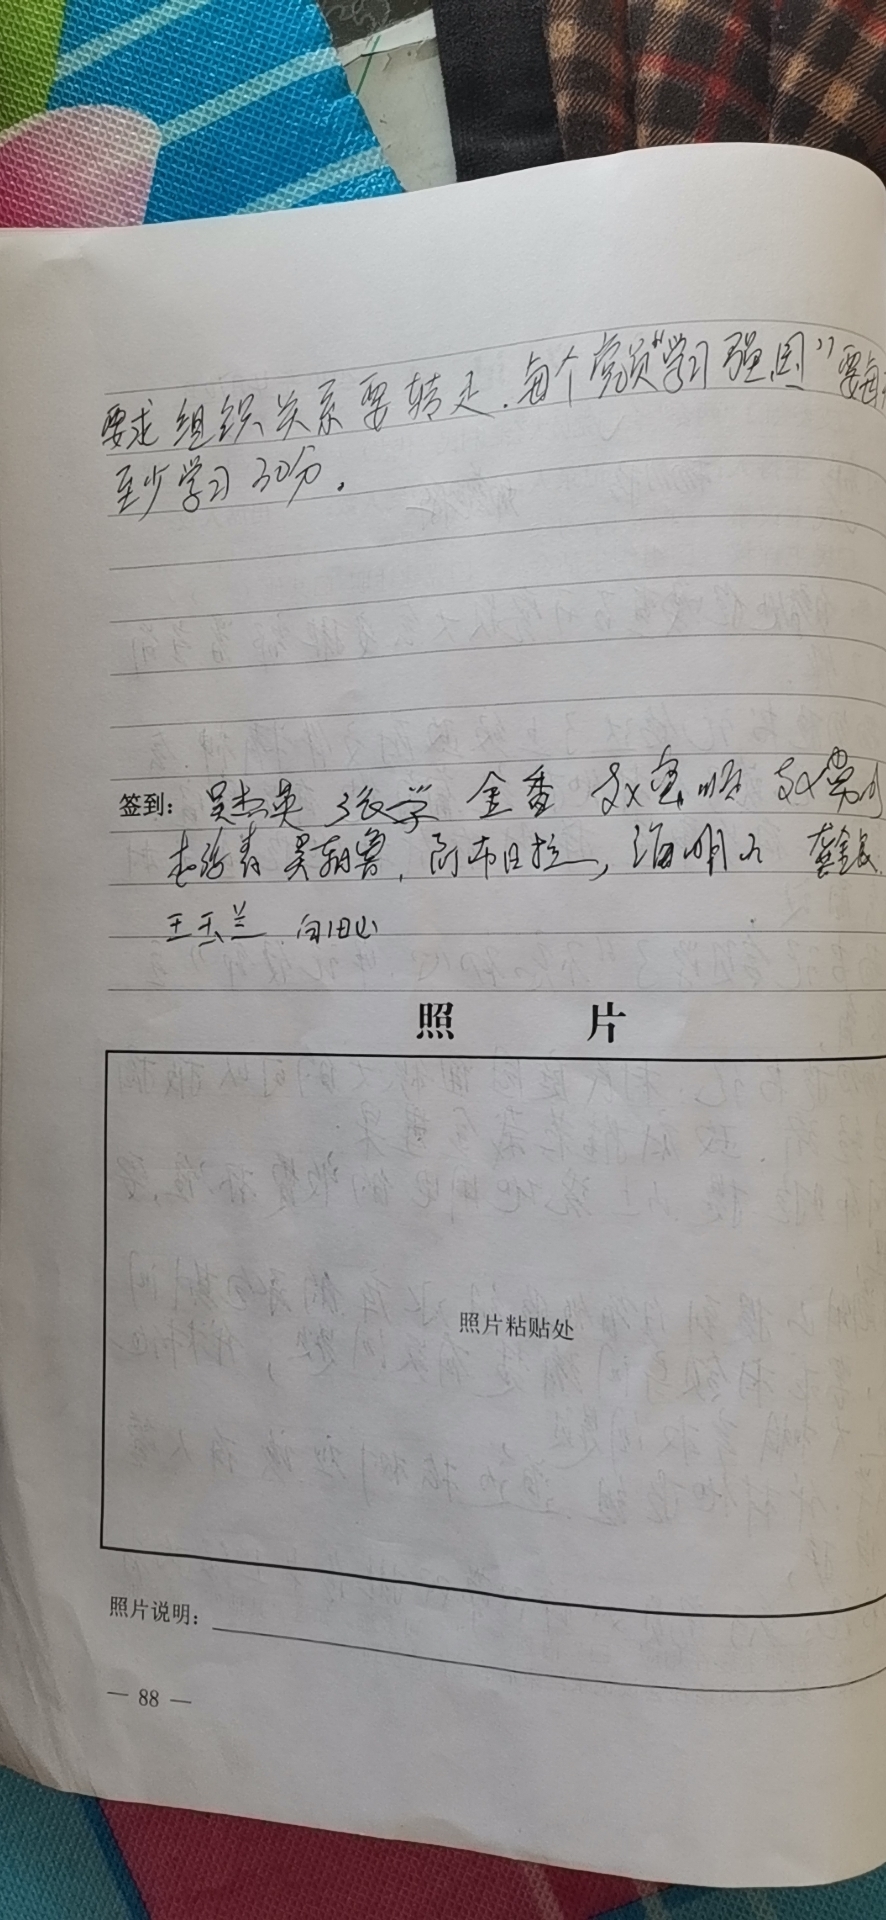 要求组织关系要转走.每个党员“学习强国”要每
至少学习30分.
签到: 吴杰英 张学 金香
吴朝鲁, 阿布日拉, 海明
王玉兰 白旧山
照 片
照片粘贴处
照片说明:
— 88 —